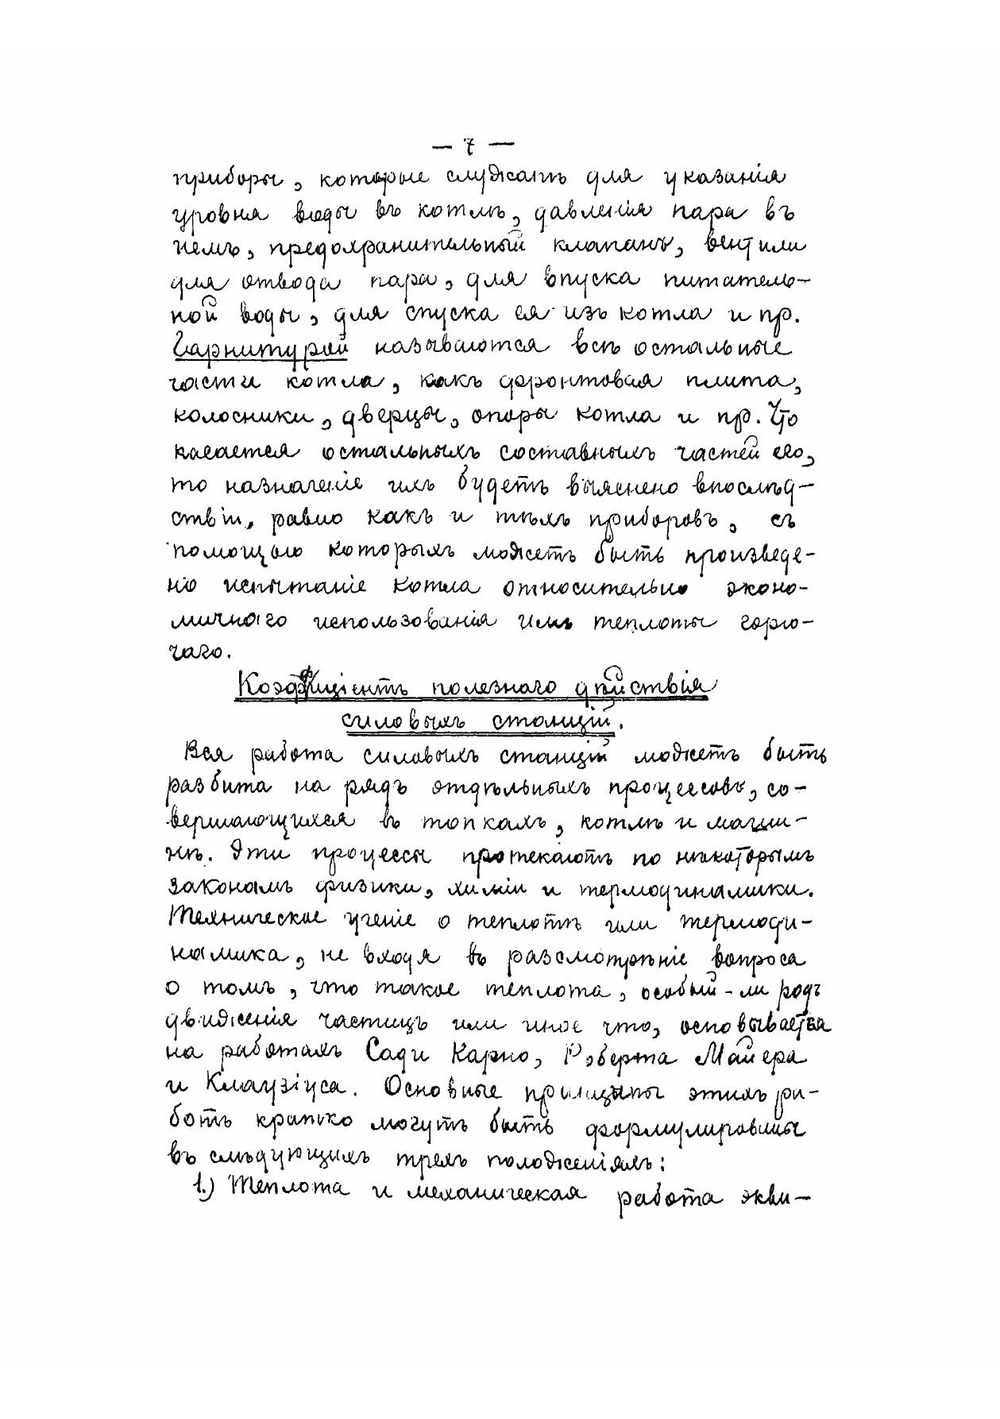 — 7 —
приборы, которые служатъ для указанія
уровня воды въ котлѣ, давленія пара въ
немъ, предохранительный клапанъ, вентили
для отвода пара, для впуска питатель-
ной воды, для спуска ея изъ котла и пр.
Гарнитурой называются всѣ остальные
части котла, какъ фронтовая плита,
колосники, дверцы, опоры котла и пр. Что
касается остальныхъ составныхъ частей его,
то назначеніе ихъ будетъ выяснено впослѣд-
ствіи, равно какъ и тѣхъ приборовъ, съ
помощью которыхъ можетъ быть произведе-
но испытаніе котла относительно эконо-
мичнаго использованія имъ теплоты горю-
чаго.
Коэффиціентъ полезнаго дѣйствія
силовыхъ станцій.
Вся работа силовыхъ станцій можетъ быть
разбита на рядъ отдѣльныхъ процессовъ, со-
вершающихся въ топкахъ, котлѣ и маши-
нѣ. Эти процессы протекаютъ по нѣкоторымъ
законамъ физики, химіи и термодинамики.
Техническое ученіе о теплотѣ или термоди-
намика, не входя въ разсмотрѣніе вопроса
о томъ, что такое теплота, особый-ли родъ
движенія частицъ или иное что, основывается
на работахъ Сади Карно, Роберта Майера
и Клаузіуса. Основные принципы этихъ ра-
ботъ кратко могутъ быть формулированы
въ слѣдующихъ трехъ положеніяхъ:
1.) Теплота и механическая работа экви-